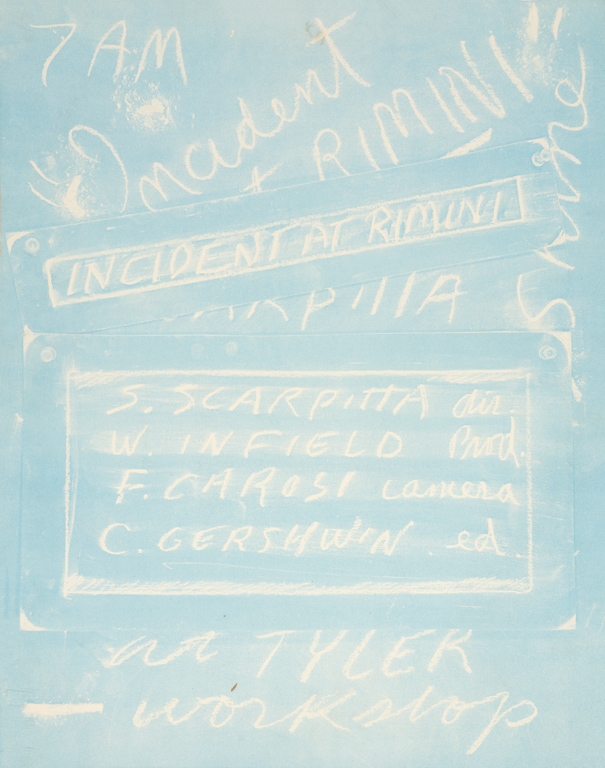 7 AM
"Incident
RIMINI"
INCIDENT AT RIMINI
ARPITTA
S. SCARPITTA dir.
W. INFIELD Prod.
F. CAROSI camera
C. GERSHWIN ed.
at TYLER
workshop